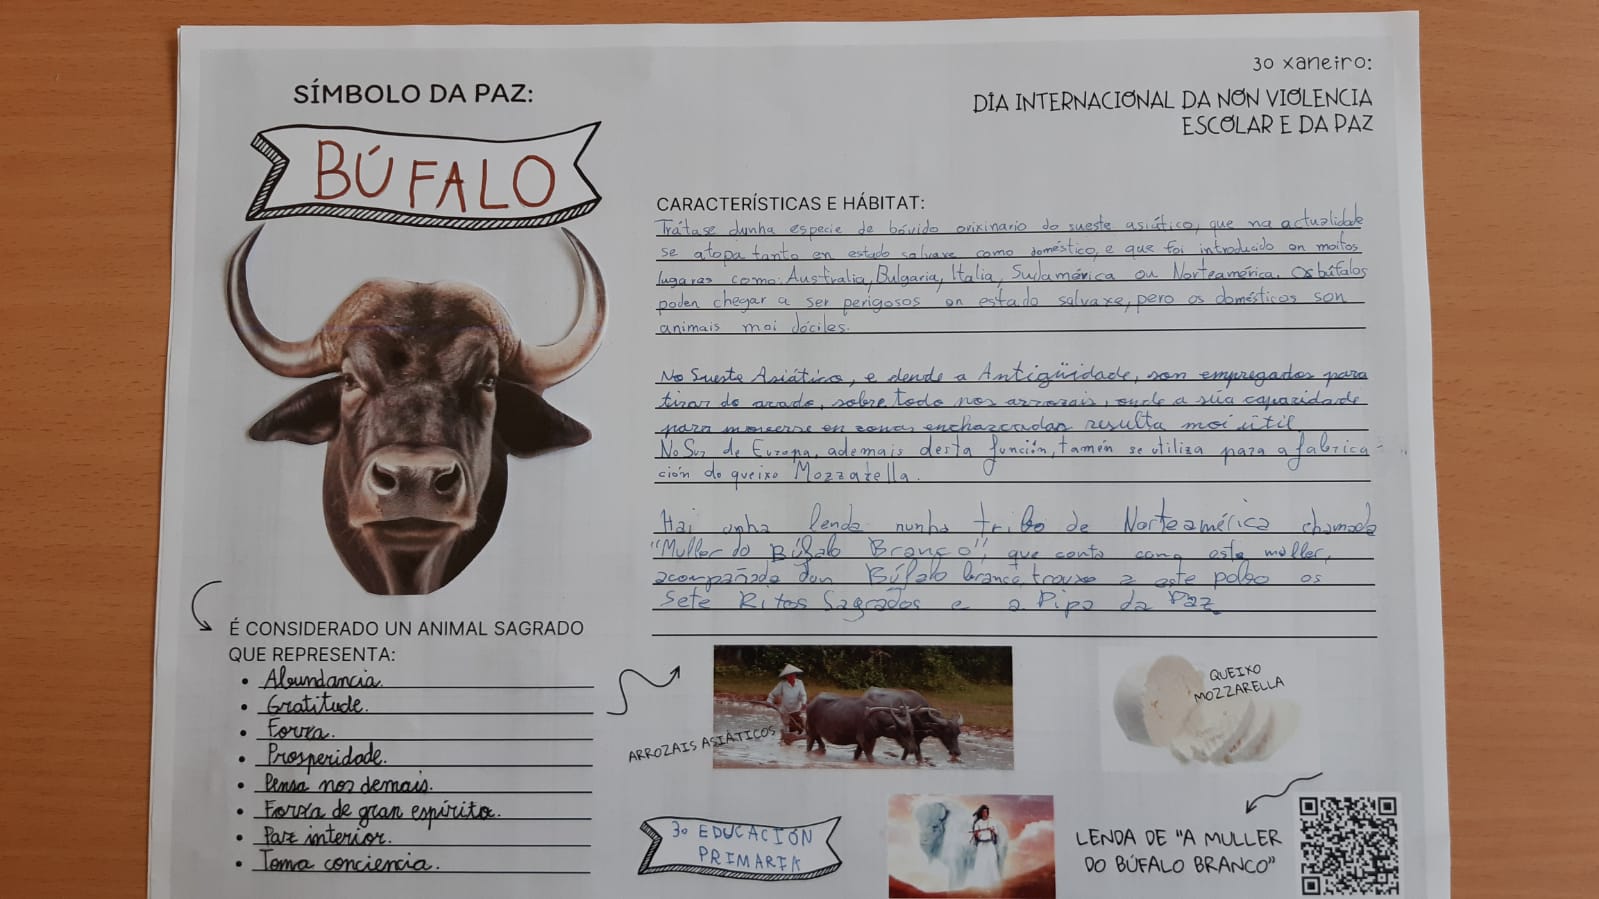 SÍMBOLO DA PAZ:
BÚFALO
30 xaneiro:
DÍA INTERNACIONAL DA NON VIOLENCIA
ESCOLAR E DA PAZ
CARACTERÍSTICAS E HÁBITAT:
Trátase dunha especie de bóvido orixinario do sueste asiático, que na actualidade
se atopa tanto en estado salvaxe como doméstico, e que foi introducido en moitos
lugares como: Australia, Bulgaria, Italia, Sudamérica ou Norteamérica. Os búfalos
poden chegar a ser perigosos en estado salvaxe, pero os domésticos son
animais moi dóciles.
No Sueste Asiático, e dende a Antigüidade, son empregados para
tirar do arado, sobre todo nos arrozais, onde a súa capacidade
para moverse en zonas encharcadas resulta moi útil.
No Sur de Europa, ademais desta función, tamén se utiliza para a fabrica-
ción do queixo Mozzarella.
Hai unha lenda nunha tribo de Norteamérica chamada
"Muller do Búfalo Branco", que conta como esta muller,
acompañada dun Búfalo branco, trouxo a este pobo os
Sete Ritos Sagrados e a Pipa da Paz
É CONSIDERADO UN ANIMAL SAGRADO
QUE REPRESENTA:
• Abundancia.
• Gratitude.
• Forza.
• Prosperidade.
• Pensa nos demais.
• Forza de gran espírito.
• Paz interior.
• Toma conciencia.
ARROZAIS ASIÁTICOS
QUEIXO
MOZZARELLA
3º EDUCACIÓN
PRIMARIA
LENDA DE "A MULLER
DO BÚFALO BRANCO"